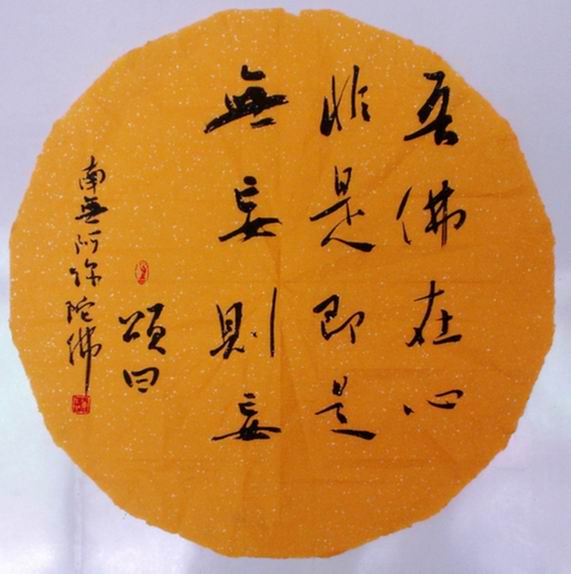 吾佛在心
非是即是
無妄則妄
頌曰
南無阿弥陀佛